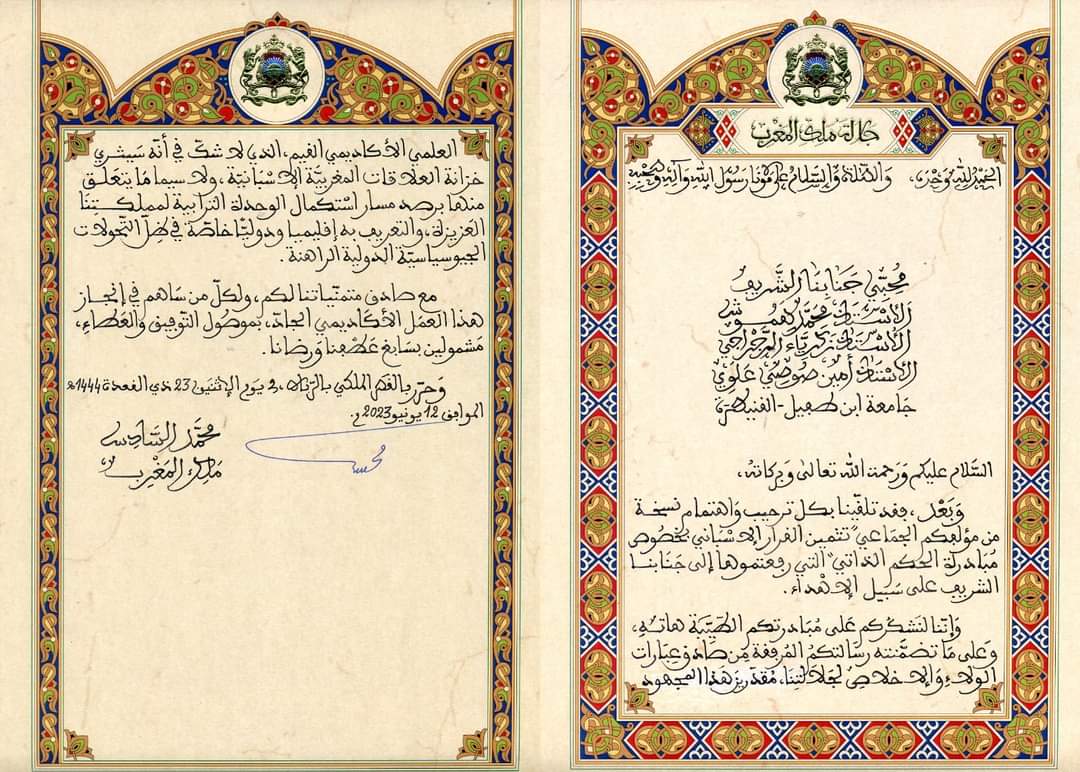 جلالة ملك المغرب
الحمد لله وحده، والصلاة والسلام على مولانا رسول الله وآله وصحبه
محبي جنابنا الشريف
الأستاذ محمد
الأستاذ زكرياء
الأستاذ أمين صوصي علوي
جامعة ابن طفيل - القنيطرة
السلام عليكم ورحمة الله تعالى وبركاته،
وَبَعْد، فقد تلقّينا بكل ترحيب وَاهتمام نسخة
من مؤلفكم الجمَاعي "تثمين القرار الإسْبَاني بخصُوص
مبَادرة الحكم الذاتي" التي رفعتموهَا إلى جَنَابنَا
الشريف على سَبيل الإهْداء.
وَإنّنا لنَشكُركم عَلى مُبَادرتكم الطيّبَة هاته،
وَعلى مَا تضمّنته رسَالتكمُ المُرفقة من صَادق عبَارات
الولاء وَالإخلاص لجَلالتنَا، مُقدّرين هَذا المجهود
العلمي الأكاديمي القيم، الذي لا شكّ في أنّه سَيثري
خزانة العلاقات المغربيّة الإسْبَانيّة، ولا سيما مَا يتعَلق
منهَا برصد مسَار اسْتكمال الوحدة الترَابية لمملكتنَا
العزيزة، والتعريف به إقليميا ودوليّا خاصّة في ظِلّ التّحولات
الجيوسيَاسيّة الدولية الرَاهنة.
مع صَادق متمنّياتنا لكم، ولكلّ من سَاهم في إنجَاز
هَذا العمَل الأكَاديمي الجَادّ، بموصُول التوفيق وَالعَطاء،
مَشمولين بسَابغ عَطفِنا وَرضَانا.
وَحرّر بالقصر الملكي بالرّباط، في يَوم الإثنَين 23 ذي القعدة 1444هـ
الموافق 12 يونيو 2023م.
محمّد السّادس
مَلك المَغْرب